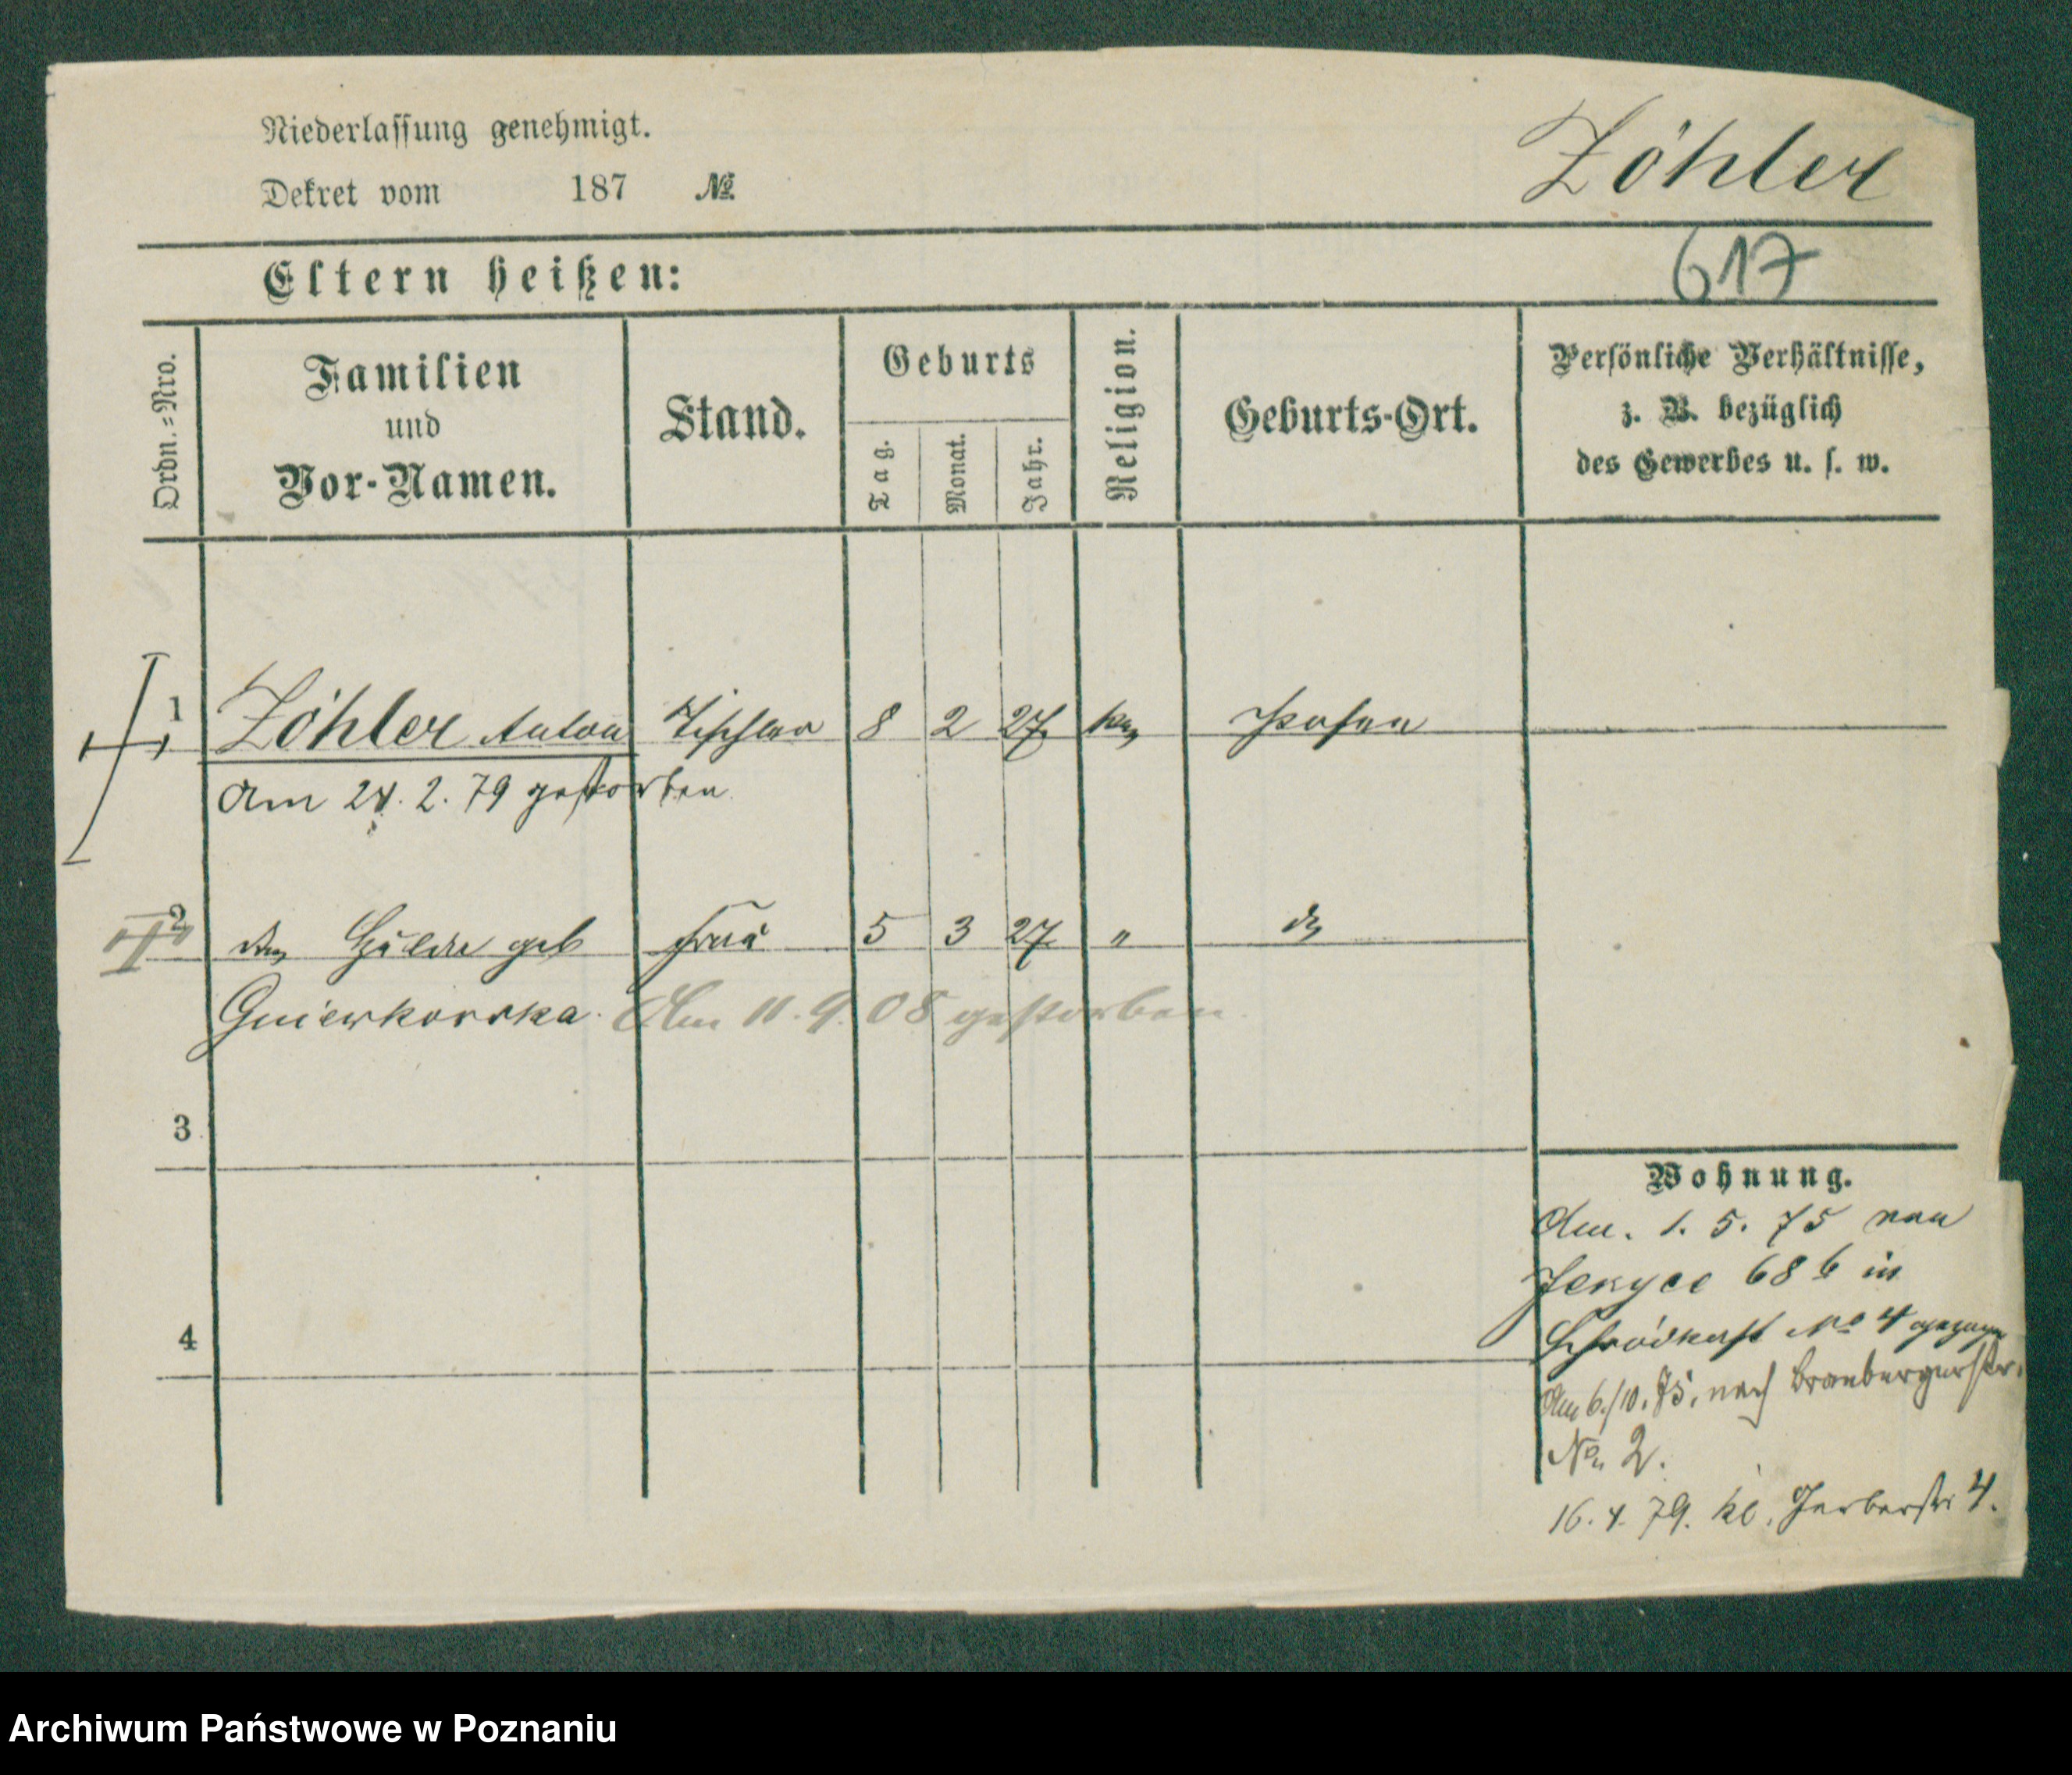 Niederlassung genehmigt.
Dekret vom 187 №
Zöhler
Eltern heißen:
617
Ordn.=Nro.
Familien
und
Vor-Namen.
Stand.
Geburts
Tag.
Monat.
Jahr.
Religion.
Geburts-Ort.
Persönliche Verhältnisse,
z. B. bezüglich
des Gewerbes u. s. w.
1 Zöhler Anton Tischler 8 2 27 Posen
Am 24. 2. 79 gestorben
2 geb Frau 5 3 27 "
Am 11. 9. 08 gestorben.
3
4
Wohnung.
Am. 1. 5. 75 von
68 b in
No 4 gezogen
Am 6./10. 75. nach
No. 2.
16. 4. 79. kl. Gerberstr 4.
Archiwum Państwowe w Poznaniu